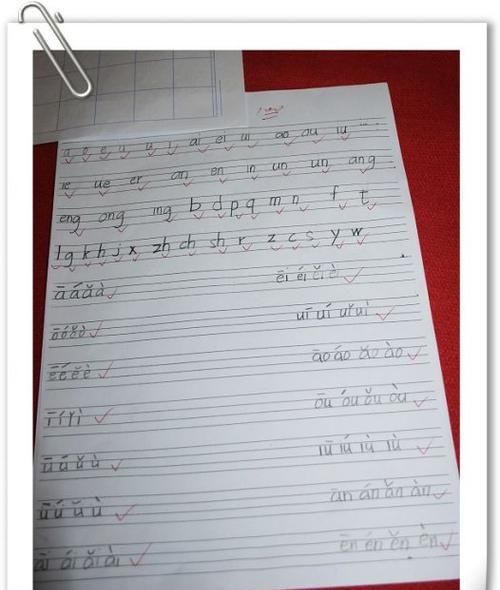 a o e u u i ai ei ui ao ou iu
ie ue er an en in un un ang
eng ong ing b d p q m n f t
l g k h j x zh ch sh r z c s y w
ā á ǎ à ēi éi ěi èi
ō ó ǒ ò uī uí uǐ uì
ē é ě è āo áo ǎo ào
ī í ǐ ì ōu óu ǒu òu
ū ú ǔ ù iū iú iǔ iù
ū ú ǔ ù ān án ǎn àn
āi ái ǎi ài ēn én ěn èn